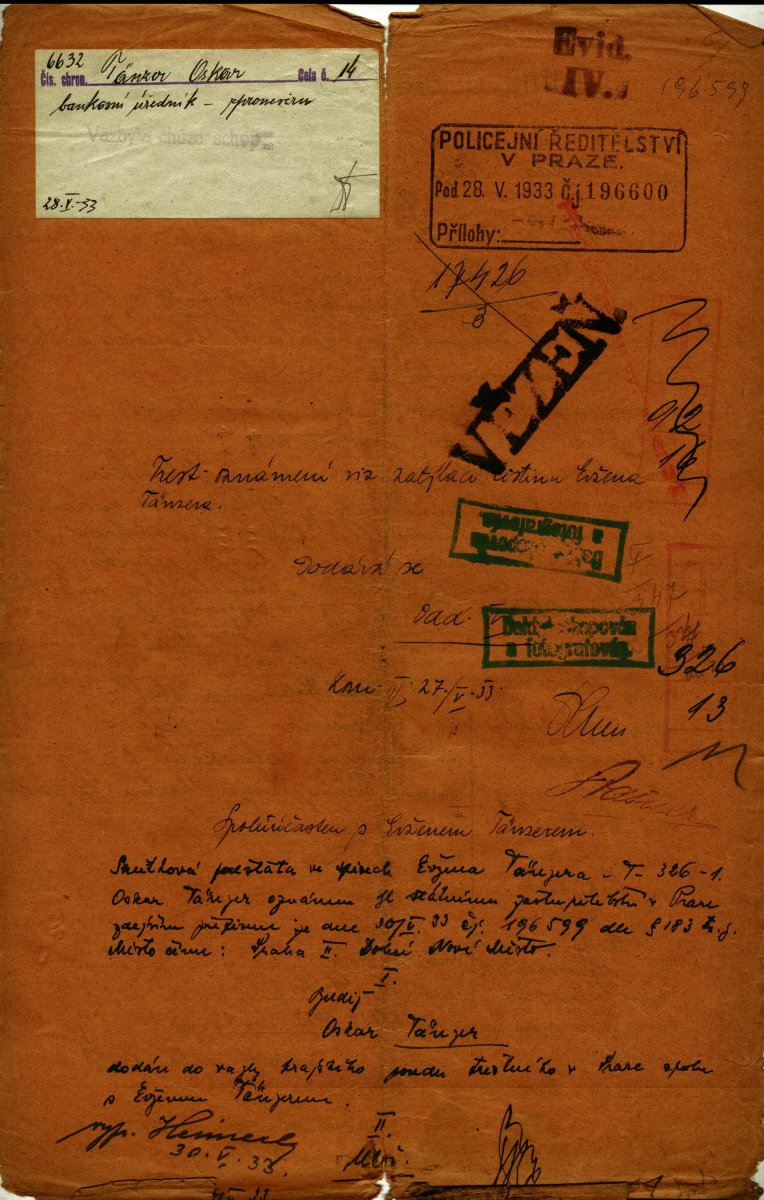 6632
Čís. chron. Tänzer Oskar Cela č. 14
bankovní úředník – zpronevěra
Vazby chůze schop
28.V.33
Evid.
IV.
196599
POLICEJNÍ ŘEDITELSTVÍ
V PRAZE.
Pod. 28. V. 1933 Čj 196600
Přílohy:
17426
3
VĚZEŇ.
92
14
Trest. oznámení viz zatýkací Evžena
Tänzera.
a fotografován.
Dodává se
odd.
Daktyloskopován
a fotografován.
347
326
13
Kom. III. 27./V. 33.
Spoluúčasten s Evženem Tänzerem.
Skutková podstata ve spisech Evžena Tänzera – T – 326 – 1.
Oskar Tänzer oznámen jl státnímu zastupitelstvu v Praze
zdejším přípisem ze dne 30/V. 33 čj. 196599 dle § 183 tr. z.
Místo činu: Praha II. Dolní Nové Město.
I.
Budiž
Oskar Tänzer
dodán do vazby krajského soudu trestního v Praze spolu
s Evženem Tänzerem.
vyp.
30.V.33.
II.